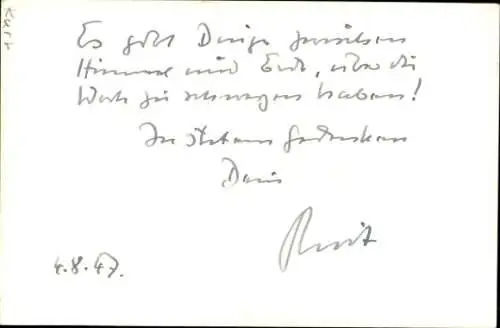 Es gibt Dinge zwischen
Himmel und Erde, über die
Worte zu schweigen haben!
In stetem Gedenken
Dein
4.8.47.